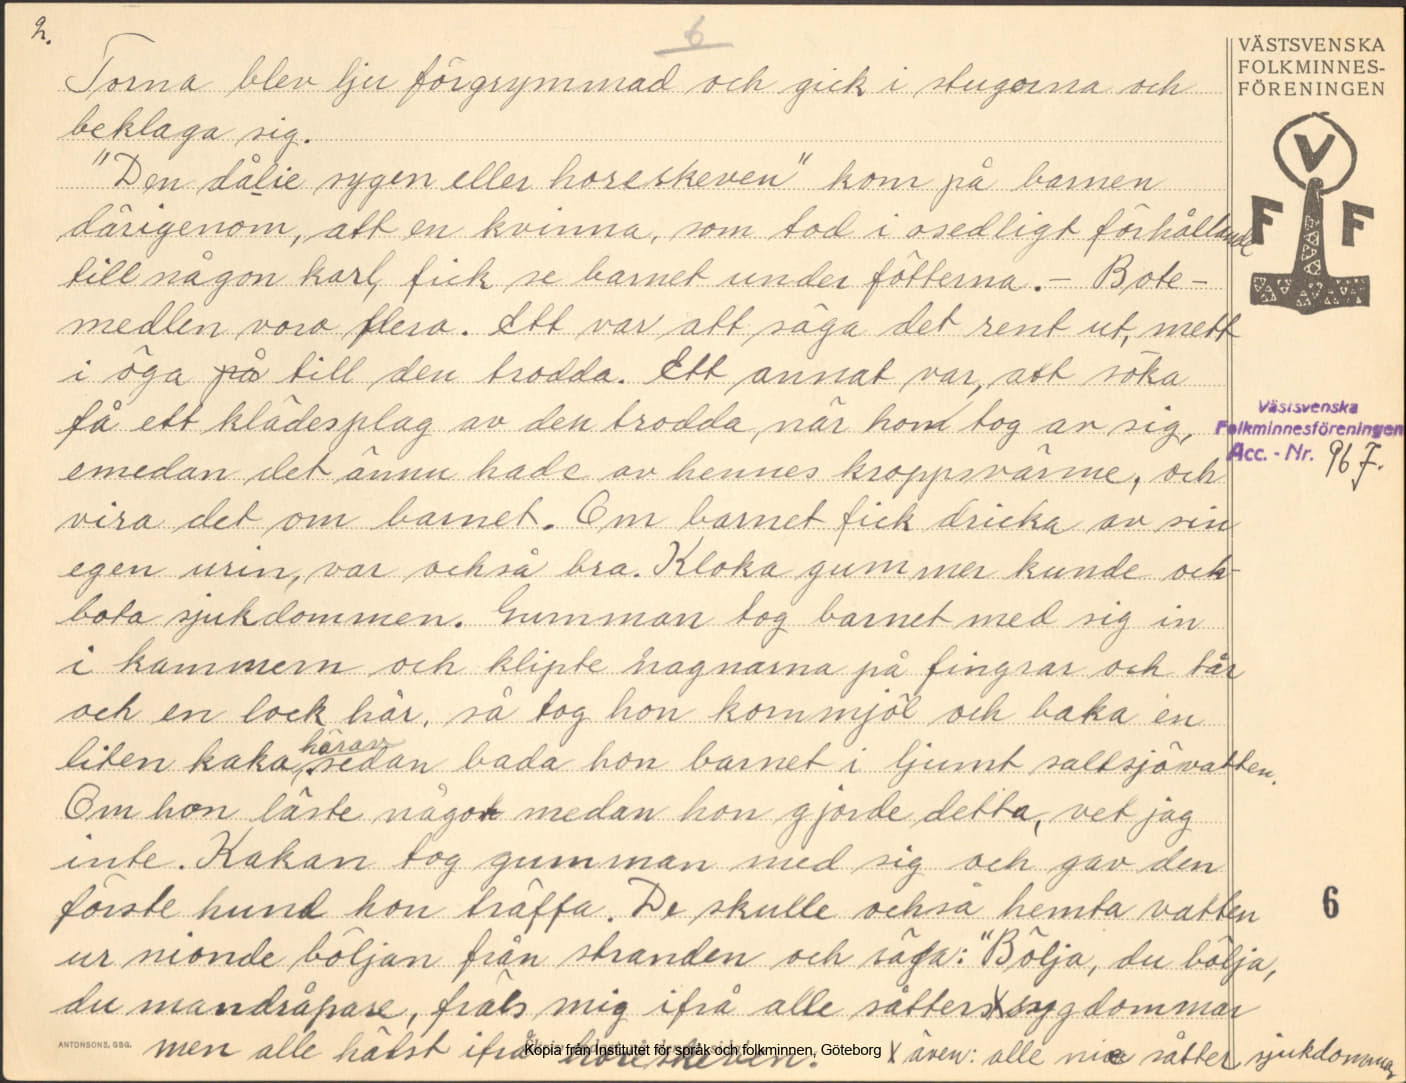 2.
6
VÄSTSVENSKA
FOLKMINNES-
FÖRENINGEN
V
F F
Torna blev lju förgrymmad och gick i stugorna och
beklaga sig.
"Den dålie sygen eller horeskeven" kom på barnen
därigenom, att en kvinna, som stod i osedligt förhållande
till någon karl, fick se barnet under fötterna. – Bote-
medlen voro flera. Ett var att säga det rent ut, mett
i öga på till den trodda. Ett annat var, att söka
få ett klädesplag av den trodda, när hon tog av sig,
emedan det ännu hade av hennes kroppsvärme, och
vira det om barnet. Om barnet fick dricka av sin
egen urin, var också bra. Kloka gummer kunde och
bota sjukdommen. Gumman tog barnet med sig in
i kammern och klipte nagnarna på fingrar och tår
och en lock hår, så tog hon kornmjöl och baka en
liten kaka härav, sedan bada hon barnet i ljumt saltsjövatten.
Om hon läste något medan hon gjorde detta, vet jag
inte. Kakan tog gumman med sig och gav den
förste hund hon träffa. De skulle också hemta vatten
ur nionde böljan från stranden och säga: "Bölja, du bölja,
du mandråpare, fräls mig ifrå alle såtters x sygdommar
men alle hälst ifrå horeskeven.
x även: alle nie såtter sjukdommar
Västsvenska
Folkminnesföreningen
Acc. - Nr. 967.
6
ANTONSONS, GBG.
Kopia från Institutet för språk och folkminnen, Göteborg